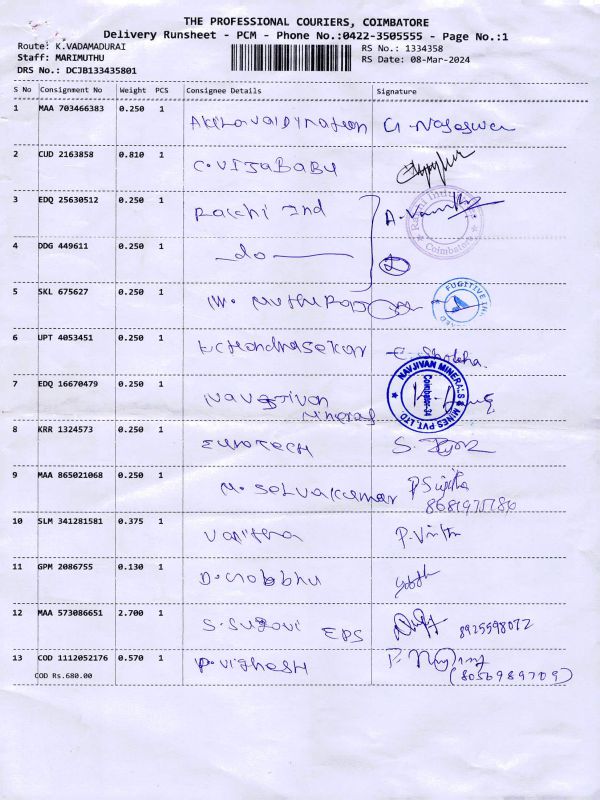 THE PROFESSIONAL COURIERS, COIMBATORE
Delivery Runsheet - PCM - Phone No.:0422-3505555 - Page No.:1
Route: K.VADAMADURAI RS No.: 1334358
Staff: MARIMUTHU RS Date: 08-Mar-2024
DRS No.: DCJB133435801
S No Consignment No Weight PCS Consignee Details Signature
1 MAA 703466383 0.250 1
2 CUD 2163858 0.810 1 C. VIJABABU
3 EDQ 25630512 0.250 1 Raichi Ind
4 DDG 449611 0.250 1 -do-
Coimbatore
5 SKL 675627 0.250 1 FUGITIVE
6 UPT 4053451 0.250 1 E. Shobha.
7 EDQ 16670479 0.250 1 Navjivan Mineral
NAVJIVAN MINERALS & MINES PVT. LTD
Coimbatore-24
8 KRR 1324573 0.250 1 EUROTECH
9 MAA 865021068 0.250 1 M. SELVAKUMAR P Sujitha
10 SLM 341281581 0.375 1 Vanitha
11 GPM 2086755 0.130 1
12 MAA 573086651 2.700 1 S. Sugavi EPS 8925598072
13 COD 1112052176 0.570 1 P. Vighesh
COD Rs.680.00 (8056989709)